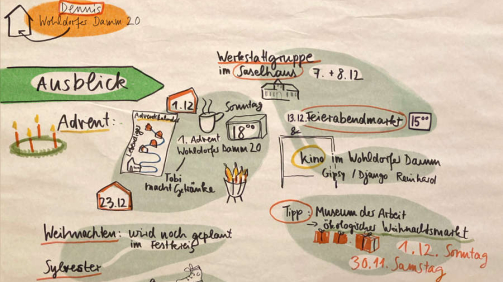 Dennis
Wohldorfer Damm 20
Ausblick
Advent:
Adventskalender
1.12
Sonntag
18⁰⁰
1. Advent
Wohldorfer Damm 20
Tobi
macht Getränke
23.12
Weihnachten: wird noch geplant
im Festkreis
Sylvester
Werkstattgruppe
im Saselhaus
7. + 8.12
13.12. Feierabendmarkt
15⁰⁰
&
Kino im Wohldorfer Damm
Gipsy / Django Reinhard
Tipp: Museum der Arbeit
→ ökologischer Weihnachtsmarkt
1.12. Sonntag
30.11. Samstag